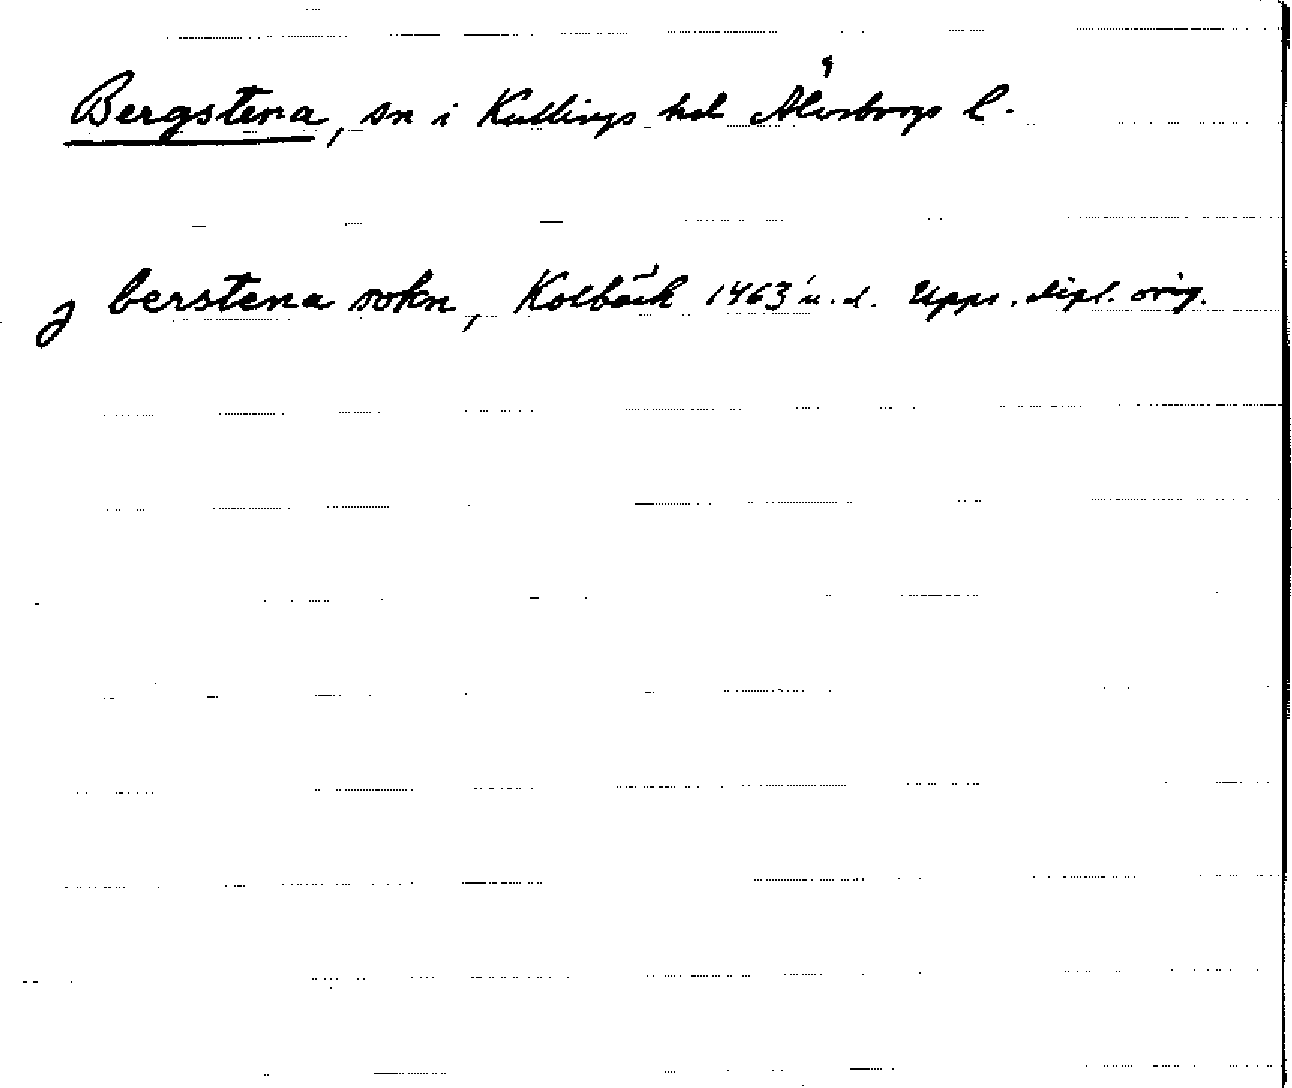 Bergstena, sn i Kullings hd Älvsborgs l.
j berstena sokn, Kolbäck 1463 u.d. Upps. dipl. orig.